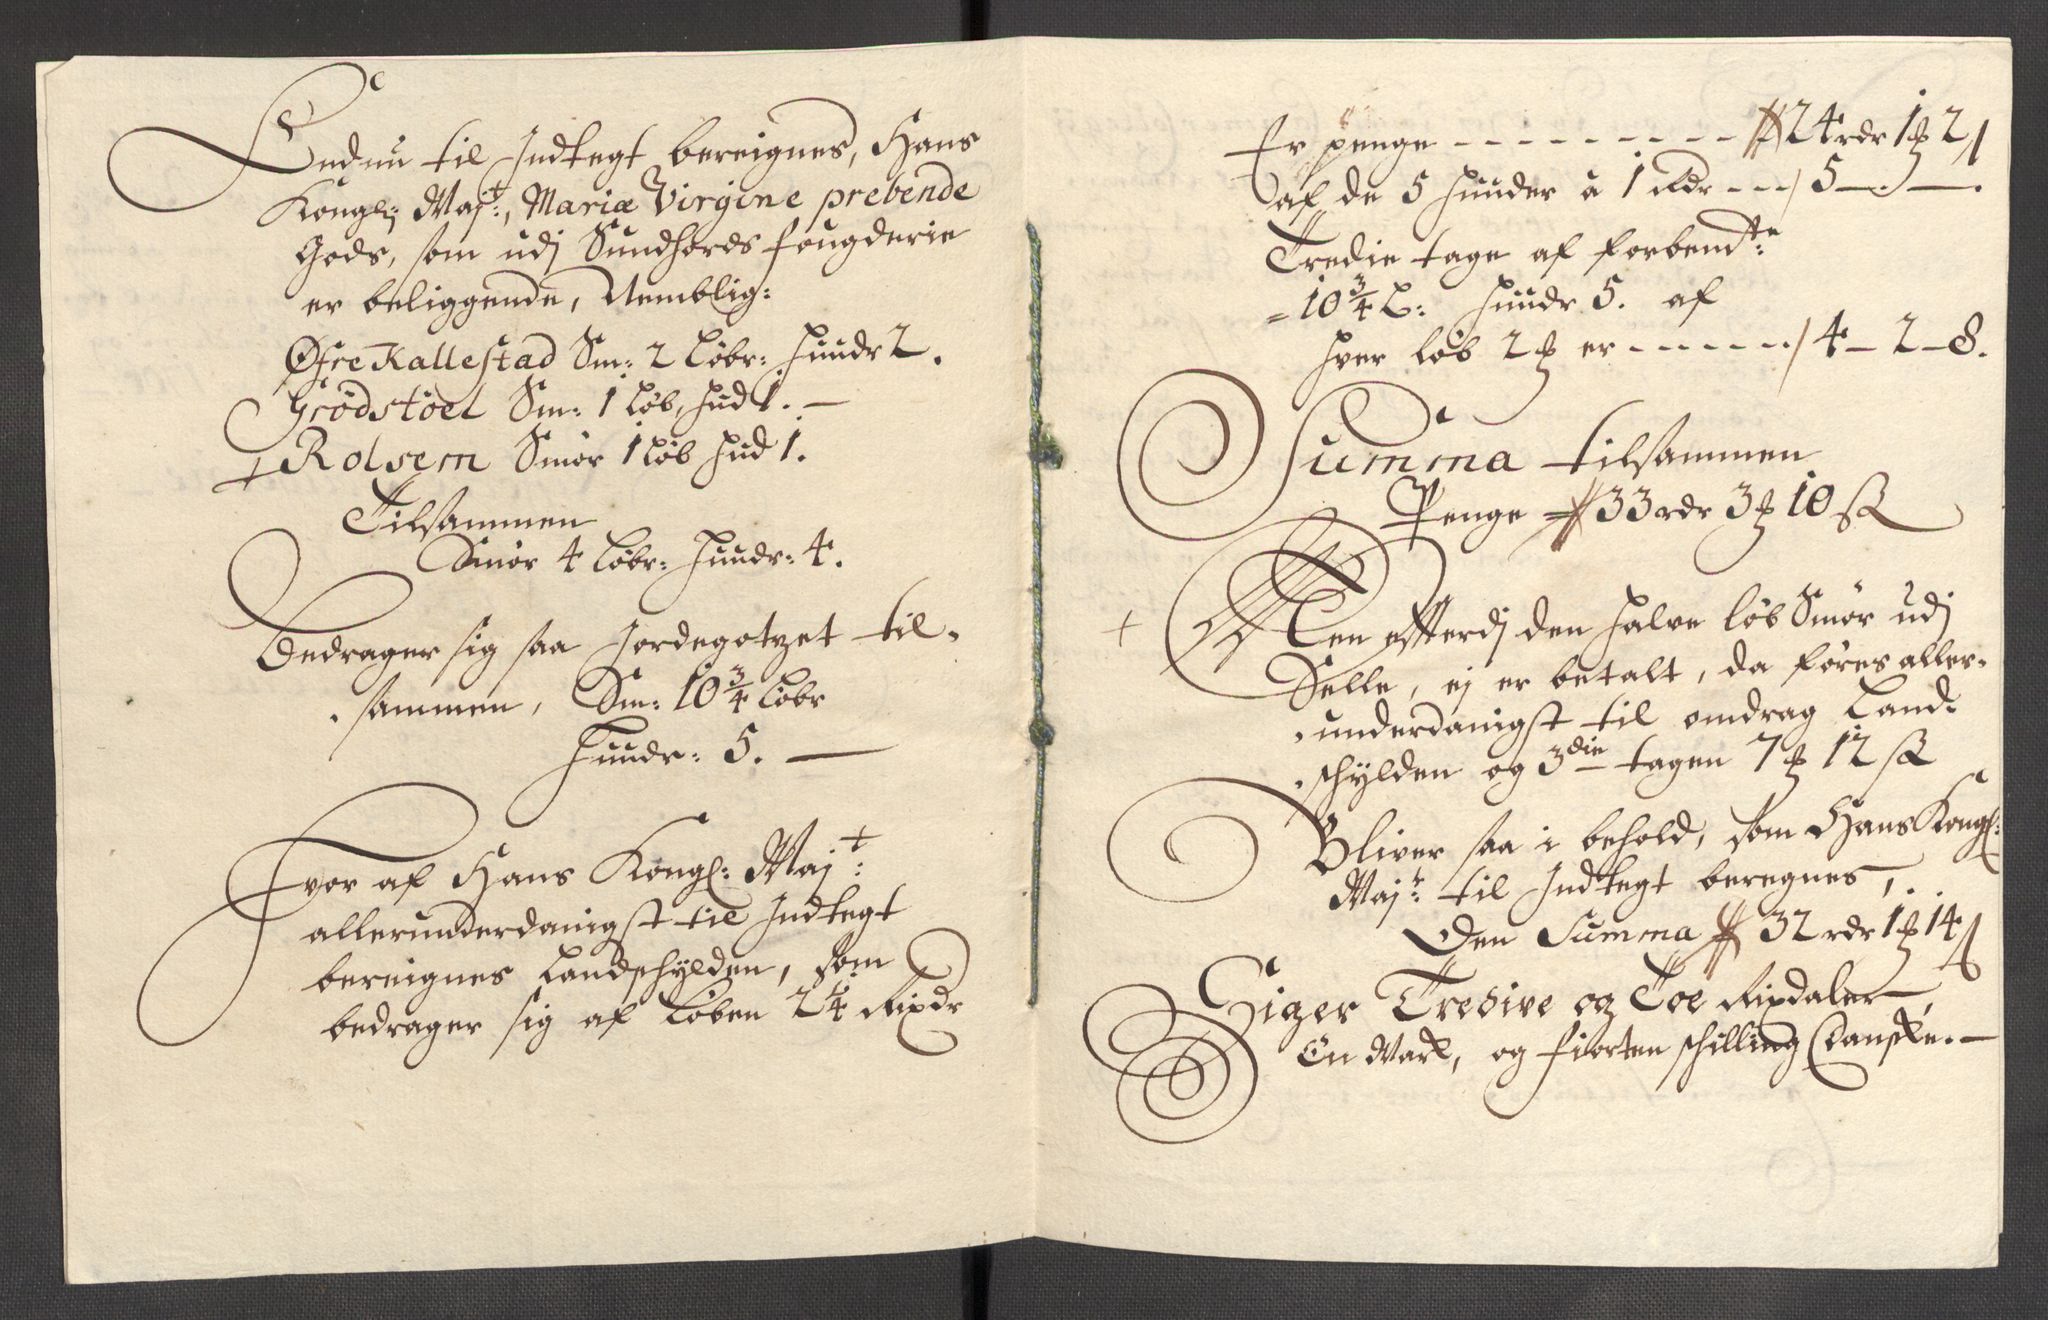 Endnu til Indtegt bereignes, Hans
Kongl: Maj:t, Mariæ Virgine prebende
Gods, som udj Sundhords fougderie
er beliggende, Nemblig:
Øfre Kallestad Sm: 2 Løbr: Huudr 2.
Grödstöel Sm: 1 Løb, Hud 1. —
+ Rolsem Smør 1 Løb Hud 1.
Tilsammen
Smør 4 Løbr: Huudr: 4.
Bedrager sig saa Jordegotzet til-
sammen, Sm: 10 3/4 Løbr
Huudr: 5. —
Hvor af Hans Kongl: Maj:t
allerunderdanigst til Indtegt
bereignes Landschylden, som
bedrager sig af Løben 2 1/4 Rixdr
Er penge - - - - - - - - - 24 rdr 1 ꝝ 2 ß
af de 5 Huuder à 1 Rdr - - - / 5 — . — .
Tredie tage af forbend:te
= 10 3/4 L: Huudr 5. af
hver løb 2 ꝝ er - - - - - - / 4 — 2 — 8.
Summa tilsammen
Penge 33 rdr 3 ꝝ 10 ß
+ Men efftterdj den halve løb Smør udj
Selle, ej er betalt, da føres aller-
underdanigst til omdrag Land-
schylden og 3die tagen 7 ꝝ 12 ß
Bliver saa i behold, som Hans Kongl:
Maj:t til Indtegt beregnes,
Den Summa 32 rdr 1 ꝝ 14 ß
Siger Tredive og Toe Rixdaler,
En Mark, og fiorten schilling Danske. —